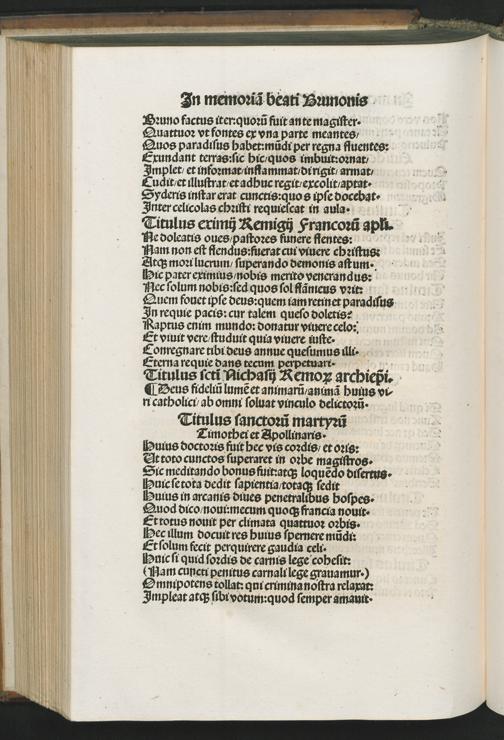 In memoriā beati Brunonis
Bruno factus iter: quorū fuit ante magister.
Quattuor vt fontes ex vna parte meantes/
Quos paradisus habet: mūdi per regna fluentes:
Exundant terras: sic hic/ quos imbuit: ornat/
Implet/ et informat/ inflammat/ dirigit/ armat/
Cudit/ et illustrat/ et adhuc regit/ excolit/ aptat.
Syderis instar erat cunctis: quos ipse docebat.
Inter celicolas christi requiescat in aula.
Titulus eximij Remigij Francorū apli.
Ne doleatis oues/ pastores funere flentes:
Nam non est flendus: fuerat cui viuere christus:
Atqꝫ mori lucrum/ superando demonis astum.
Hic pater eximius/ nobis merito venerandus:
Nec solum nobis: sed quos sol flāmicus vrit:
Quem fouet ipse deus: quem iam retinet paradisus
In requie pacis: cur talem queso doletis?
Raptus enim mundo: donatur viuere celo:
Et viuit vere/ studuit quia viuere iuste.
Congregare tibi deus annue quesumus illi.
Eterna requie dans tecum perpetuari.
Titulus scti Nichasij Remoꝝ archiep̄i.
¶ Deus fideliū lumē et animarū/ animā huius vi-
ri catholici/ ab omni soluat vinculo delictorū.
Titulus sanctorū martyrū
Timothei et Apollinaris.
Huius doctoris fuit hec vis cordis/ et oris:
Ut toto cunctos superaret in orbe magistros.
Sic meditando bonus fuit: atqꝫ loquēdo disertus.
Huic se tota dedit sapientia/ totaqꝫ sedit
Huius in arcanis diues penetralibus hospes.
Quod dico/ noui: mecum quoqꝫ francia nouit.
Et totus nouit per climata quattuor orbis.
Hec illum docuit res huius spernere mūdi:
Et solum fecit perquirere gaudia celi.
Huic si quid sordis de carnis lege cohesit:
(Nam cuncti penitus carnali lege grauamur.)
Omnipotens tollat: qui crimina nostra relaxat:
Impleat atqꝫ sibi votum: quod semper amauit.